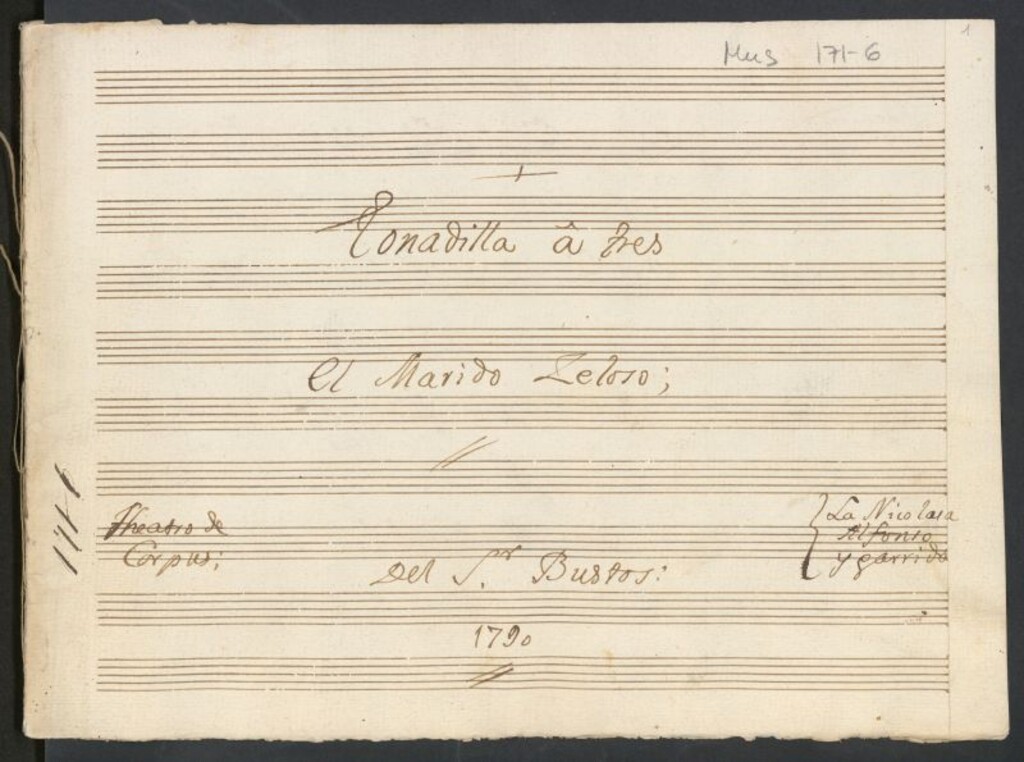 Mus 171-6
1
Tonadilla â tres
El Marido Zeloso;
Theatro de
Corpus;
Del S.r Bustos:
La Nicolasa
Alfonso
y garrido
1790
171-6